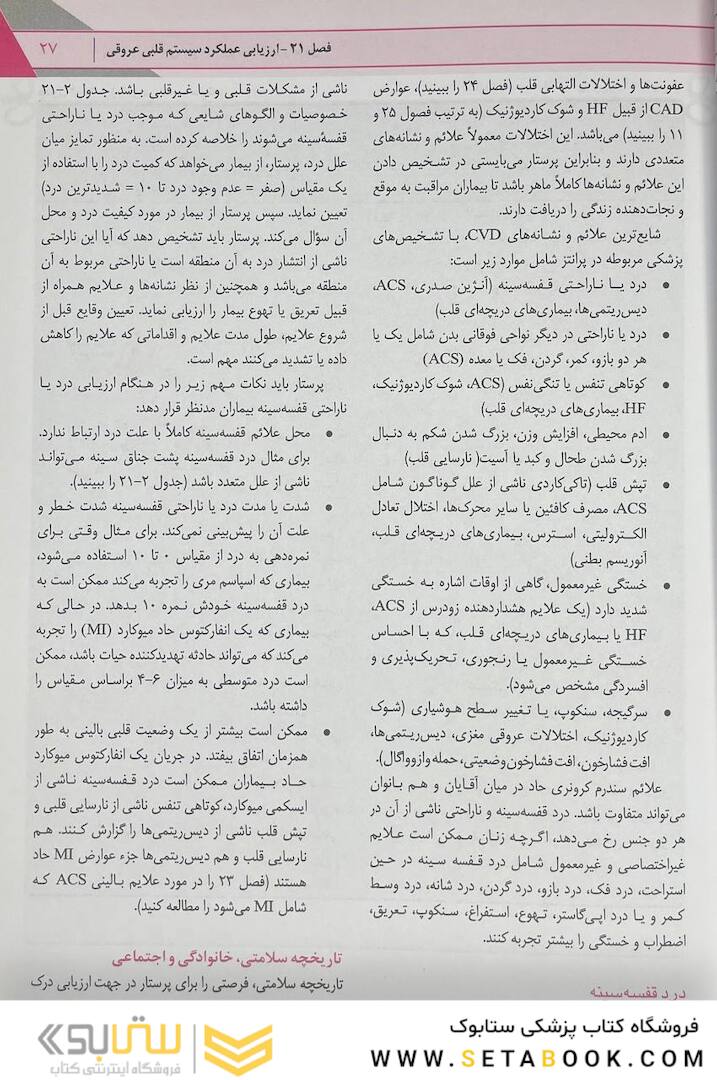 فصل ۲۱ - ارزیابی عملکرد سیستم قلبی عروقی
۲۷
عفونت‌ها و اختلالات التهابی قلب (فصل ۲۴ را ببینید)، عوارض
CAD از قبیل HF و شوک کاردیوژنیک (به ترتیب فصول ۲۵ و
۱۱ را ببینید) می‌باشد. این اختلالات معمولاً علائم و نشانه‌های
متعددی دارند و بنابراین پرستار می‌بایستی در تشخیص دادن
این علائم و نشانه‌ها کاملاً ماهر باشد تا بیماران مراقبت به موقع
و نجات‌دهنده زندگی را دریافت دارند.
شایع‌ترین علائم و نشانه‌های CVD، با تشخیص‌های
پزشکی مربوطه در پرانتز شامل موارد زیر است:
• درد یا ناراحتی قفسه‌سینه (آنژین صدری، ACS،
دیس‌ریتمی‌ها، بیماری‌های دریچه‌ای قلب)
• درد یا ناراحتی در دیگر نواحی فوقانی بدن شامل یک یا
هر دو بازو، کمر، گردن، فک یا معده (ACS)
• کوتاهی تنفس یا تنگی‌نفس (ACS، شوک کاردیوژنیک،
HF، بیماری‌های دریچه‌ای قلب)
• ادم محیطی، افزایش وزن، بزرگ شدن شکم به دنبال
بزرگ شدن طحال و کبد یا آسیت( نارسایی قلب)
• تپش قلب (تاکی‌کاردی ناشی از علل گوناگون شامل
ACS، مصرف کافئین یا سایر محرک‌ها، اختلال تعادل
الکترولیتی، استرس، بیماری‌های دریچه‌ای قلب،
آنوریسم بطنی)
• خستگی غیرمعمول، گاهی از اوقات اشاره به خستگی
شدید دارد (یک علایم هشداردهنده زودرس از ACS،
HF یا بیماری‌های دریچه‌ای قلب، که با احساس
خستگی غیرمعمول یا رنجوری، تحریک‌پذیری و
افسردگی مشخص می‌شود).
• سرگیجه، سنکوپ، یا تغییر سطح هوشیاری (شوک
کاردیوژنیک، اختلالات عروقی مغزی، دیس‌ریتمی‌ها،
افت فشارخون، افت فشارخون وضعیتی، حمله وازوواگال).
علائم سندرم کرونری حاد در میان آقایان و هم بانوان
می‌تواند متفاوت باشد. درد قفسه‌سینه و ناراحتی ناشی از آن در
هر دو جنس رخ می‌دهد، اگرچه زنان ممکن است علایم
غیراختصاصی و غیرمعمول شامل درد قفسه سینه در حین
استراحت، درد فک، درد بازو، درد گردن، درد شانه، درد وسط
کمر و یا درد اپی‌گاستر، تهوع، استفراغ، سنکوپ، تعریق،
اضطراب و خستگی را بیشتر تجربه کنند.
درد قفسه‌سینه
ناشی از مشکلات قلبی و یا غیرقلبی باشد. جدول ۲-۲۱
خصوصیات و الگوهای شایعی که موجب درد یا ناراحتی
قفسهٔ‌سینه می‌شوند را خلاصه کرده است. به منظور تمایز میان
علل درد، پرستار، از بیمار می‌خواهد که کمیت درد را با استفاده از
یک مقیاس (صفر = عدم وجود درد تا ۱۰ = شدیدترین درد)
تعیین نماید. سپس پرستار از بیمار در مورد کیفیت درد و محل
آن سؤال می‌کند. پرستار باید تشخیص دهد که آیا این ناراحتی
ناشی از انتشار درد به آن منطقه است یا ناراحتی مربوط به آن
منطقه می‌باشد و همچنین از نظر نشانه‌ها و علایم همراه از
قبیل تعریق یا تهوع بیمار را ارزیابی نماید. تعیین وقایع قبل از
شروع علایم، طول مدت علایم و اقداماتی که علایم را کاهش
داده یا تشدید می‌کنند مهم است.
پرستار باید نکات مهم زیر را در هنگام ارزیابی درد یا
ناراحتی قفسه‌سینه بیماران مدنظر قرار دهد:
• محل علائم قفسه‌سینه کاملاً با علت درد ارتباط ندارد.
برای مثال درد قفسه‌سینه پشت جناق سینه می‌تواند
ناشی از علل متعدد باشد (جدول ۲-۲۱ را ببینید).
• شدت یا مدت درد یا ناراحتی قفسه‌سینه شدت خطر و
علت آن را پیش‌بینی نمی‌کند. برای مثال وقتی برای
نمره‌دهی به درد از مقیاس ۰ تا ۱۰ استفاده می‌شود،
بیماری که اسپاسم مری را تجربه می‌کند ممکن است به
درد قفسه‌سینه خودش نمره ۱۰ بدهد. در حالی که
بیماری که یک انفارکتوس حاد میوکارد (MI) را تجربه
می‌کند که می‌تواند حادثه تهدیدکننده حیات باشد، ممکن
است درد متوسطی به میزان ۶-۴ براساس مقیاس را
داشته باشد.
• ممکن است بیشتر از یک وضعیت قلبی بالینی به طور
همزمان اتفاق بیفتد. در جریان یک انفارکتوس میوکارد
حاد بیماران ممکن است درد قفسه‌سینه ناشی از
ایسکمی میوکارد، کوتاهی تنفس ناشی از نارسایی قلبی و
تپش قلب ناشی از دیس‌ریتمی‌ها را گزارش کنند. هم
نارسایی قلب و هم دیس‌ریتمی‌ها جزء عوارض MI حاد
هستند (فصل ۲۳ را در مورد علایم بالینی ACS که
شامل MI می‌شود را مطالعه کنید).
تاریخچه سلامتی، خانوادگی و اجتماعی
تاریخچه سلامتی، فرصتی را برای پرستار در جهت ارزیابی درک
فروشگاه کتاب پزشکی ستابوک
WWW.SETABOOK.COM
ستابوک
فروشگاه اینترنتی کتاب